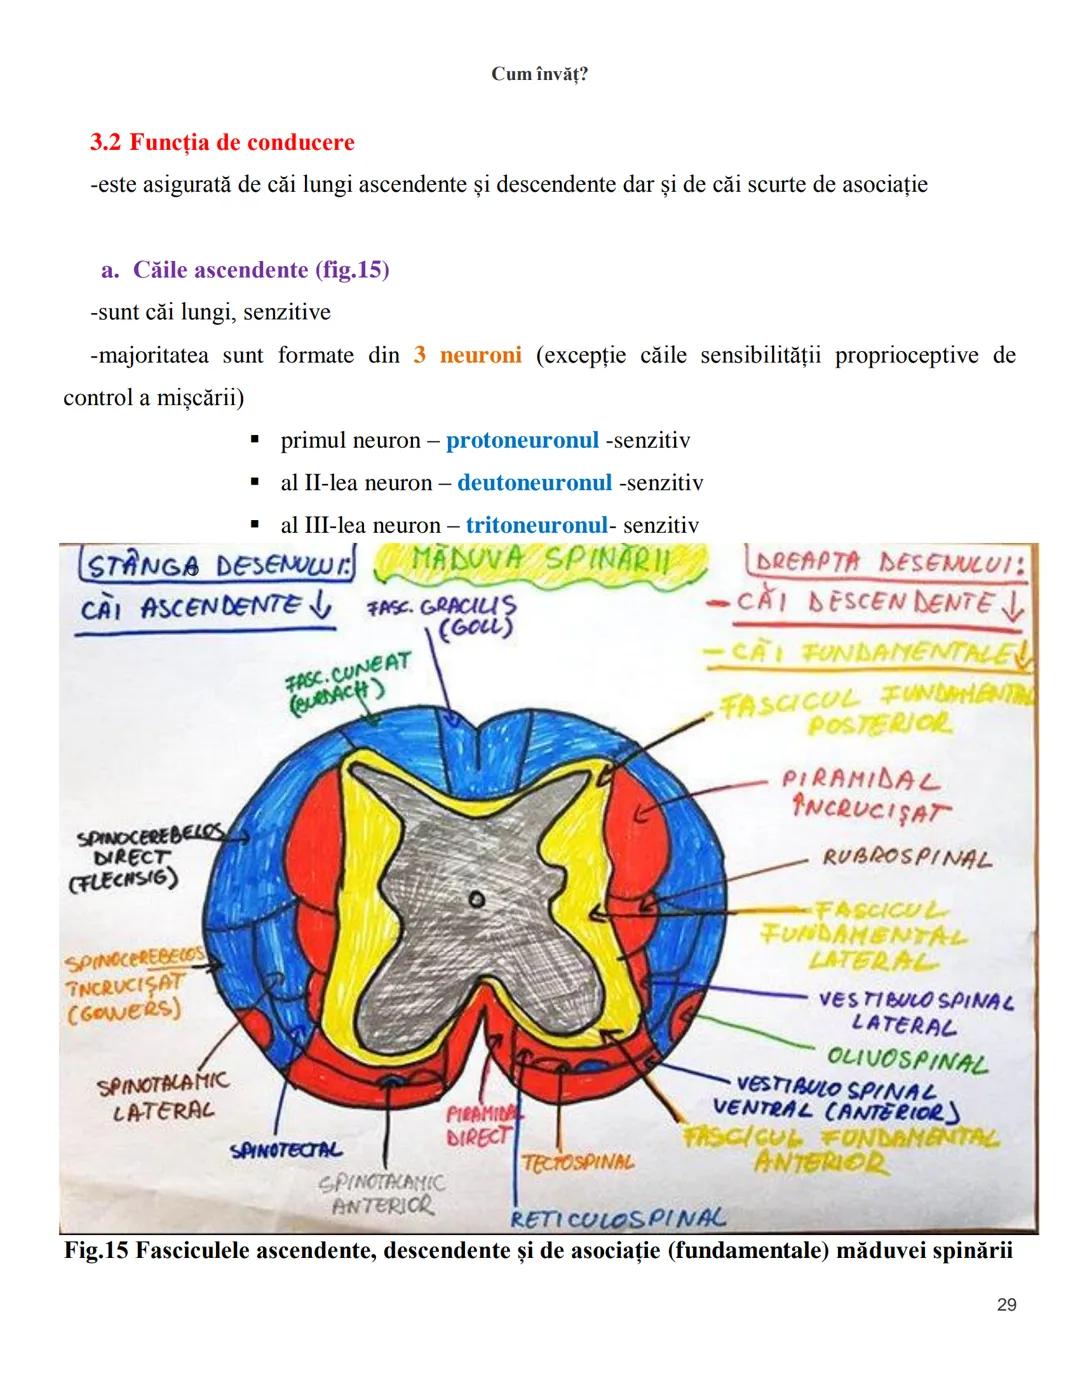 Cum învăț?
3.2 Funcția de conducere
-este asigurată de căi lungi ascendente și descendente dar și de căi scurte de asociație
a. Căile ascendente (fig.15)
-sunt căi lungi, senzitive
-majoritatea sunt formate din 3 neuroni (excepție căile sensibilității proprioceptive de
control a mișcării)
▪ primul neuron – protoneuronul -senzitiv
▪ al II-lea neuron – deutoneuronul -senzitiv
▪ al III-lea neuron – tritoneuronul- senzitiv
STÂNGA DESENULUI:
CĂI ASCENDENTE ↓
MĂDUVA SPINĂRII
DREAPTA DESENULUI:
- CĂI DESCENDENTE ↓
- CĂI FUNDAMENTALE ↓
FASC. GRACILIS
(GOLL)
FASC. CUNEAT
(BURDACH)
FASCICUL FUNDAMENTAL
POSTERIOR
PIRAMIDAL
ÎNCRUCIȘAT
SPINOCEREBELOS
DIRECT
(FLECHSIG)
RUBROSPINAL
FASCICUL
FUNDAMENTAL
LATERAL
SPINOCEREBELOS
ÎNCRUCIȘAT
(GOWERS)
VESTIBULOSPINAL
LATERAL
OLIVOSPINAL
SPINOTALAMIC
LATERAL
VESTIBULOSPINAL
VENTRAL (ANTERIOR)
PIRAMIDAL
DIRECT
FASCICUL FUNDAMENTAL
ANTERIOR
SPINOTECTAL
TECTOSPINAL
SPINOTALAMIC
ANTERIOR
RETICULOSPINAL
Fig.15 Fasciculele ascendente, descendente și de asociație (fundamentale) măduvei spinării
29